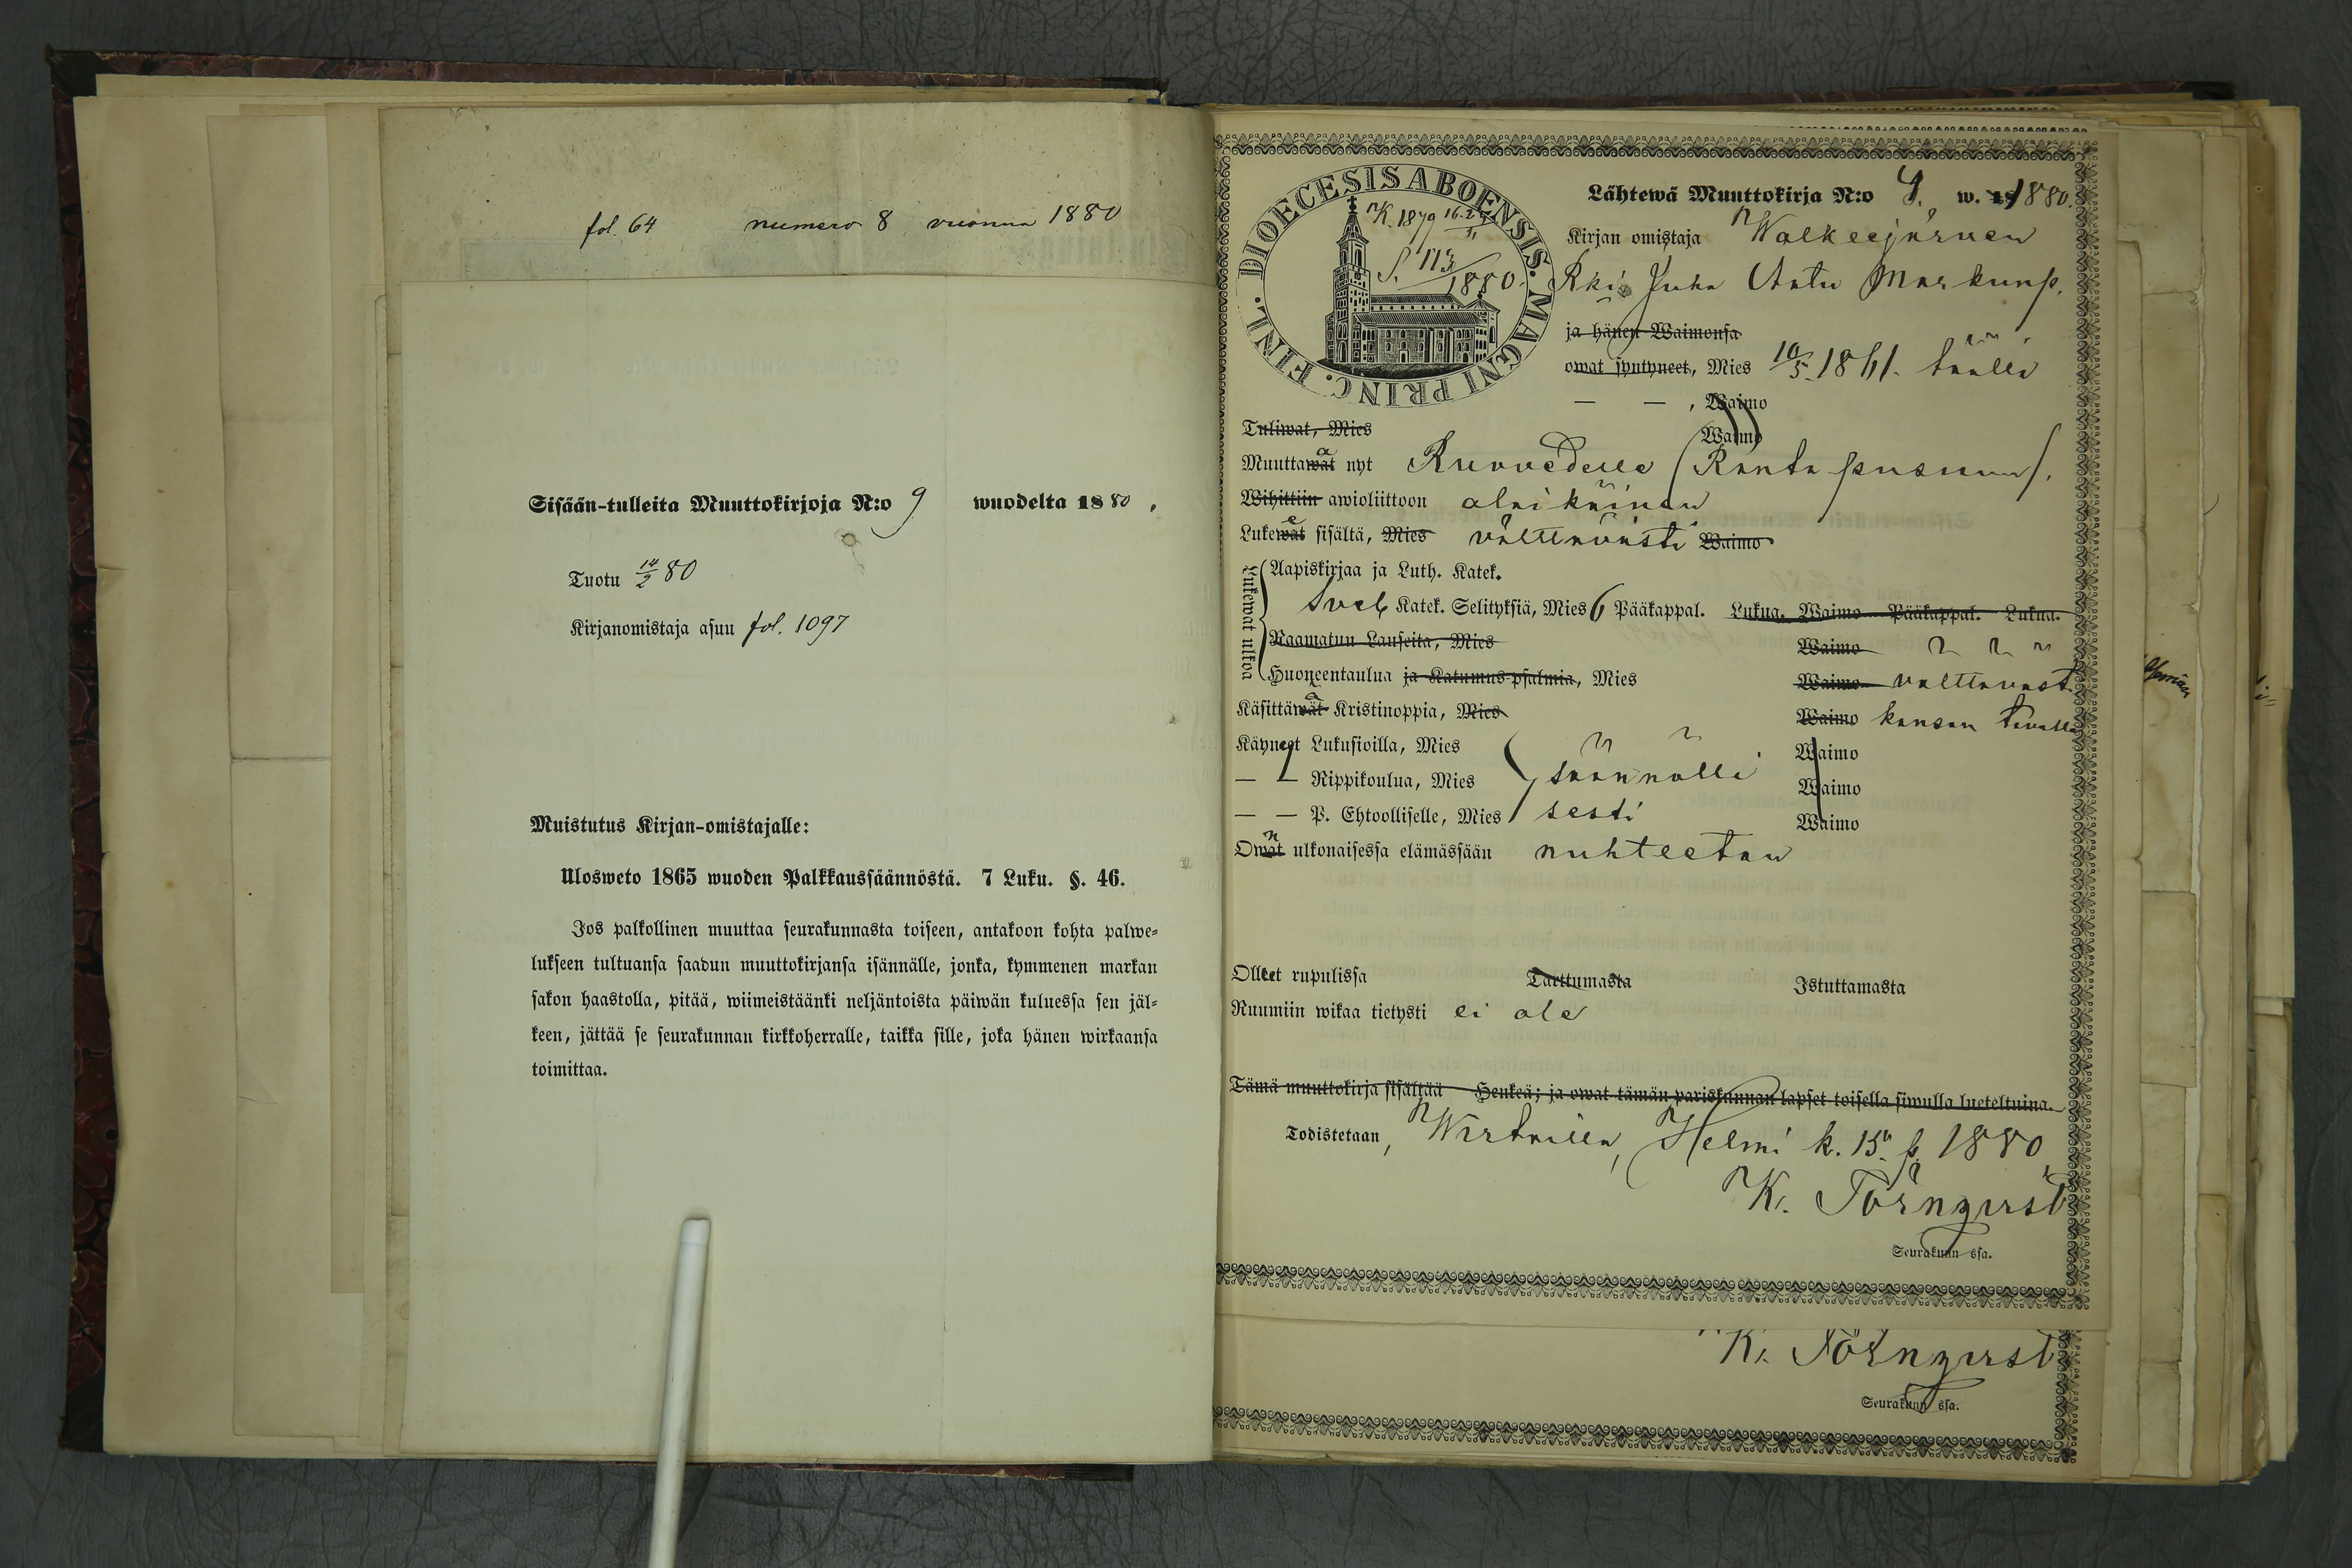 fol. 64 numero 8 vuonna 1880
Sisään-tulleita Muuttokirjoja N:o 9 wuodelta 1880,
Tuotu 14/2 80
Kirjanomistaja asuu fol. 1097
Muistutus Kirjan-omistajalle:
Ulosweto 1865 wuoden Palkkaussäännöstä. 7 Luku. §. 46.
Jos palkollinen muuttaa seurakunnasta toiseen, antakoon kohta palwe-
lukseen tultuansa saadun muuttokirjansa isännälle, jonka, kymmenen markan
sakon haastolla, pitää, wiimeistäänki neljäntoista päiwän kuluessa sen jäl-
keen, jättää se seurakunnan kirkkoherralle, taikka sille, joka hänen wirkaansa
toimittaa.
DIOECESIS ABOENSIS. MAGNI PRINC. FINL.
K. 1879
S. 113/1880.
Lähtewä Muuttokirja N:o 9. w. 1880.
Kirjan omistaja Walkeejärven
Rki Juha Antu Markunp.
ja hänen Waimonsa
owat syntyneet, Mies 10/5 1861. täällä
— — , Waimo
Tuliwat, Mies Waimo
Muuttawat nyt Ruovedelle
Wihittiin awioliittoon alaikäinen
Lukewat sisältä, Mies välttävästi Waimo
Lukewat ulkoa
Aapiskirjaa ja Luth. Katek.
Sveb Katek. Selityksiä, Mies 6 Pääkappal. Lukua. Waimo Pääkappal. Lukua.
Raamatun Lauseita, Mies Waimo
Huoneentaulua ja Katumus-psalmia, Mies Waimo välttäväst.
Käsittäwät Kristinoppia, Mies Waimo kansan tavalla
Käyneet Lukusioilla, Mies Waimo
— — Rippikoulua, Mies säännölli Waimo
— — P. Ehtoolliselle, Mies sesti Waimo
Owat ulkonaisessa elämässään nuhteeton
Olleet rupulissa Tarttumasta Istuttamasta
Ruumiin wikaa tietysti ei ole
Tämä muuttokirja sisältää Henkeä; ja owat tämän pariskunnan lapset toisella siwulla lueteltuina.
Todistetaan, Wirtailla, Helmi k. 13 p. 1880
K. Törnqvist
Seurakunn ssa.
K. Törnqvist
Seurakunn ssa.